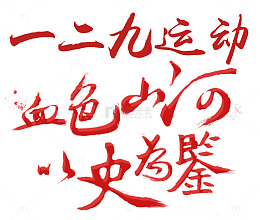 一二九运动
血色山河
以史为鉴